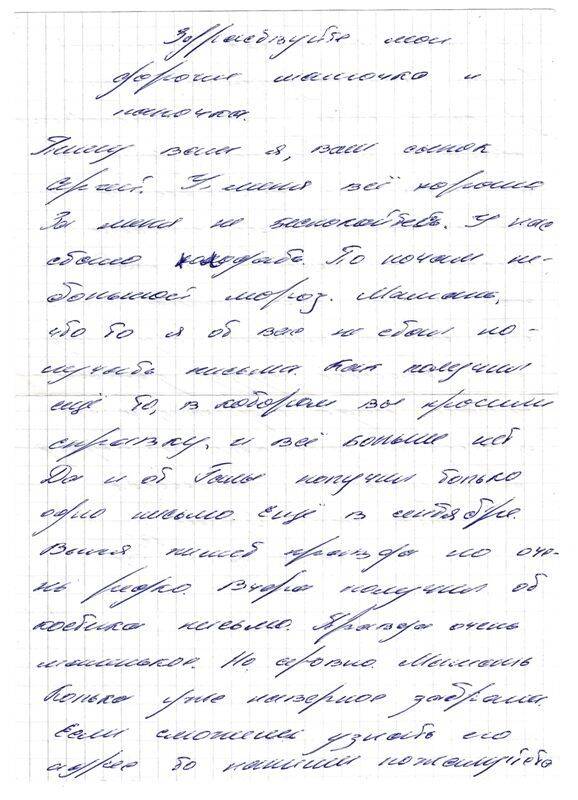 Здравствуйте мои
дорогие мамочка и
папочка.
Пишу вам я, ваш сынок
Сергей. У меня всё хорошо
За меня не беспокойтесь. У нас
стало холодать. По ночам не-
большой мороз. Мамань,
что то я от вас не стал по-
лучать письма. Как получил
ещё то, в котором вы просили
справку, и всё больше нет
Да и от Гали получил только
одно письмо. ещё в сентябре.
Витя пишет правда но оче-
нь редко. Вчера получил от
костика письмо. Правда очень
маленькое. Но Мамань
Колька уже наверное забрали.
Если сможешь узнать его
адрес то напиши пожалуйста